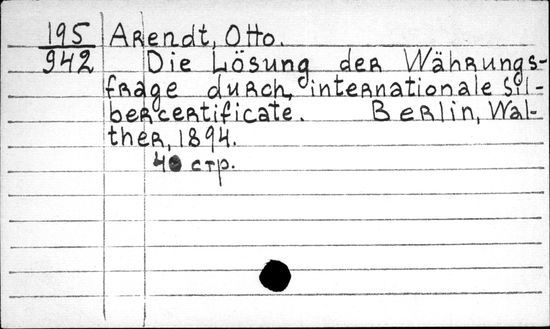 195 Arendt, Otto.
942 Die Lösung der Währungs-
frage durch internationale Sil-
bercertificate. Berlin, Wal-
ther, 1894.
40 стр.